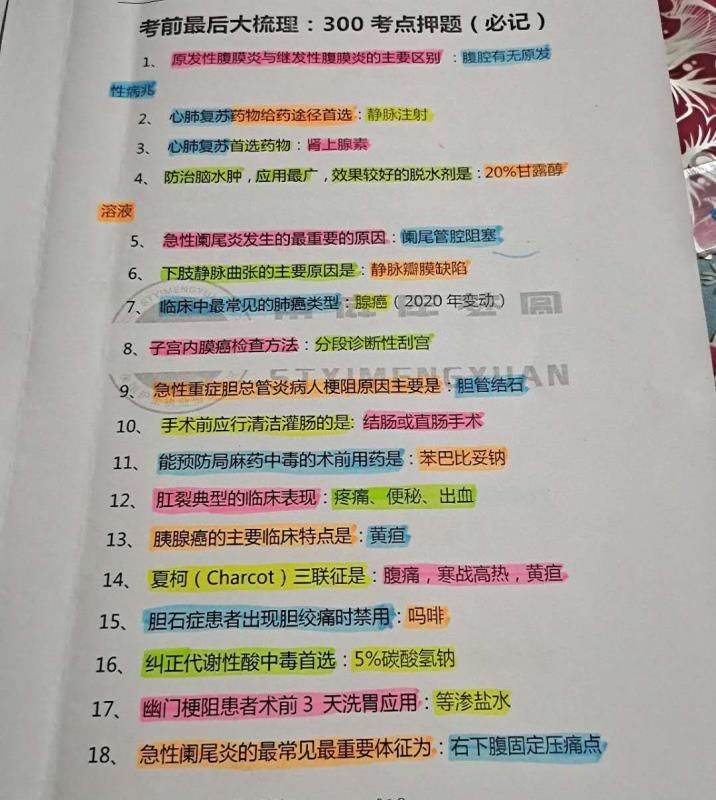 考前最后大梳理：300 考点押题（必记）
1、 原发性腹膜炎与继发性腹膜炎的主要区别 ：腹腔有无原发
性病兆
2、 心肺复苏药物给药途径首选：静脉注射
3、 心肺复苏首选药物：肾上腺素
4、 防治脑水肿，应用最广，效果较好的脱水剂是：20%甘露醇
溶液
5、 急性阑尾炎发生的最重要的原因：阑尾管腔阻塞
6、 下肢静脉曲张的主要原因是：静脉瓣膜缺陷
7、 临床中最常见的肺癌类型：腺癌（2020 年变动）
8、 子宫内膜癌检查方法：分段诊断性刮宫
STYIMENGYUAN
9、 急性重症胆总管炎病人梗阻原因主要是：胆管结石
10、 手术前应行清洁灌肠的是: 结肠或直肠手术
11、 能预防局麻药中毒的术前用药是：苯巴比妥钠
12、 肛裂典型的临床表现：疼痛、便秘、出血
13、 胰腺癌的主要临床特点是：黄疸
14、 夏柯（Charcot）三联征是：腹痛，寒战高热，黄疸
15、 胆石症患者出现胆绞痛时禁用：吗啡
16、 纠正代谢性酸中毒首选：5%碳酸氢钠
17、 幽门梗阻患者术前 3 天洗胃应用：等渗盐水
18、 急性阑尾炎的最常见最重要体征为：右下腹固定压痛点